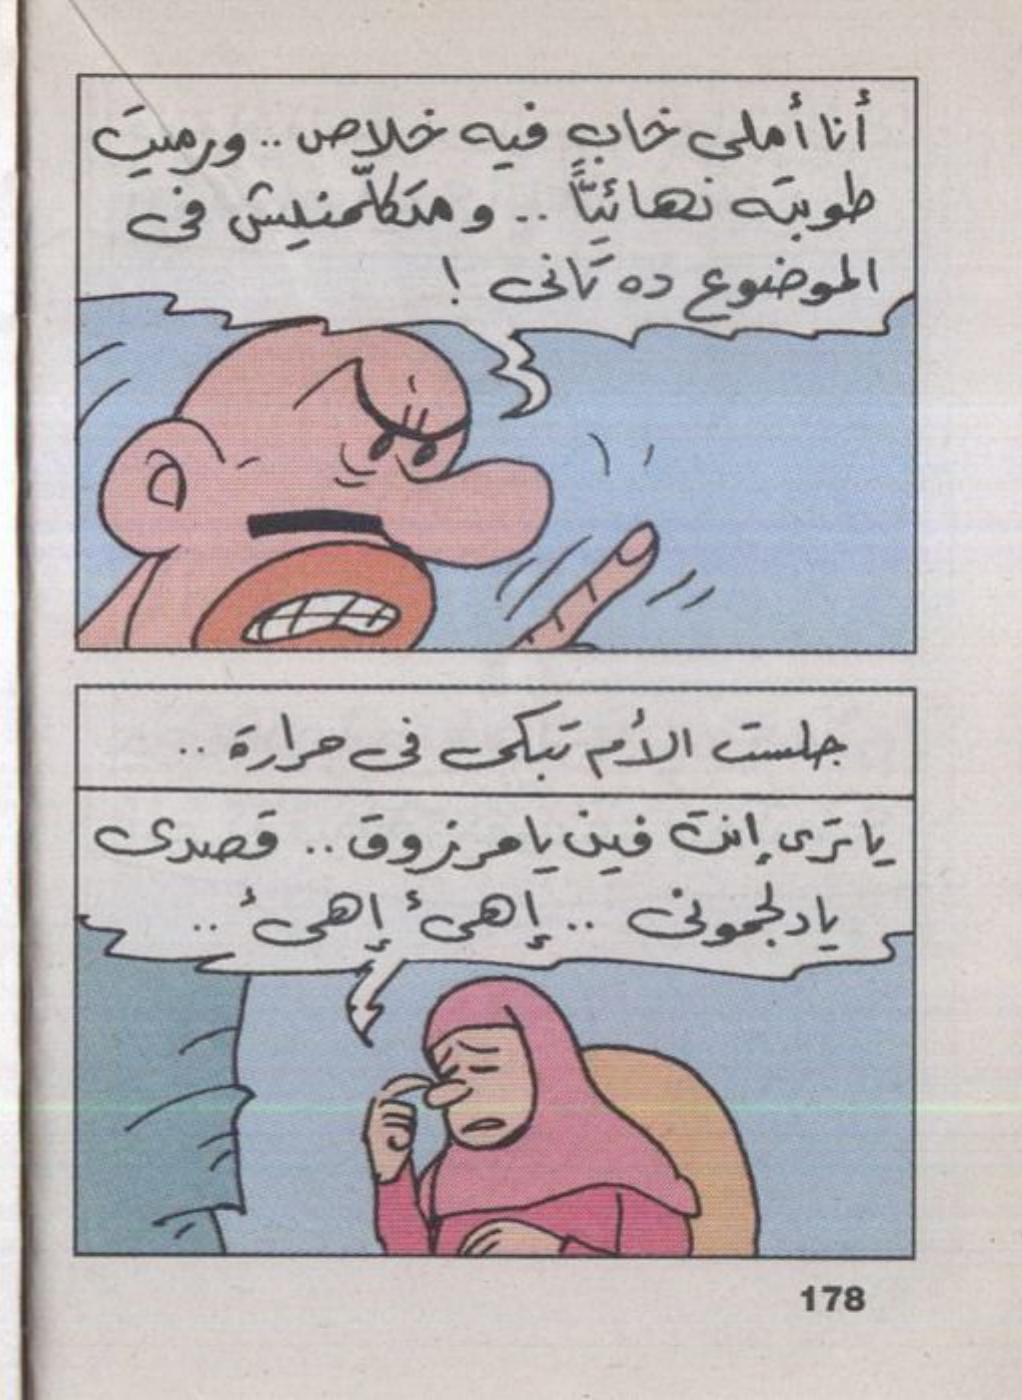 أنا أملى خاب فيه خلاص .. ورميت
طوبته نهائيًّا .. ومتكلّمنيش فى
الموضوع ده تانى !
جلست الأم تبكى فى حرارة ..
يا ترى إنت فين يا مرزوق .. قصدى
يا دلجمونى .. إهئ إهئ ..
178